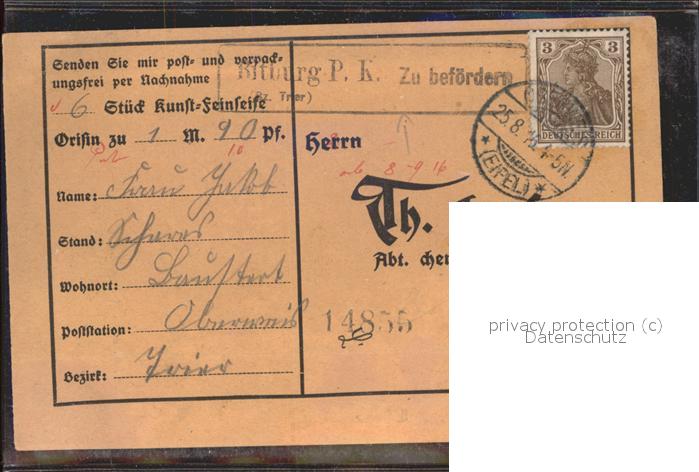 Senden Sie mir post- und verpack-
ungsfrei per Nachnahme
6 Stück Kunst-Feinseife
Orisin zu 1 M. 90 Pf.
10
Name: Frau Jakob
Stand: Scheres
Wohnort: Baustert
Poststation: Oberweis
Bezirk: Trier
Bitburg P. K. Zu befördern
(Bz. Trier)
Herrn
ab 8-9 16
Th.
Abt. chem
14855
3 3
DEUTSCHES REICH
25.8. 4-5N.
* (EIFEL) *
privacy protection (c)
Datenschutz